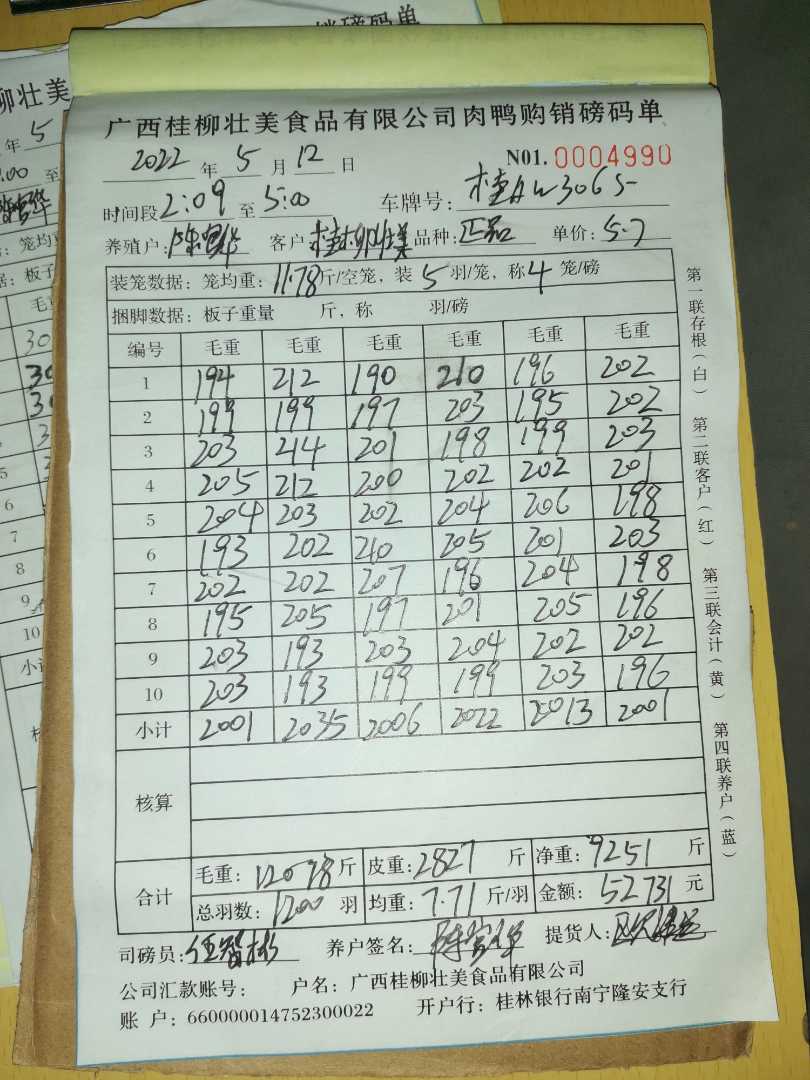 广西桂柳壮美食品有限公司肉鸭购销磅码单
2022 年 5 月 12 日 N01. 0004990
时间段 2:09 至 5:00 车牌号: 桂AW3065
养殖户: 客户: 桂柳壮美 品种: 正品 单价: 5.7
装笼数据: 笼均重: 11.78 斤/空笼, 装 5 羽/笼, 称 4 笼/磅
捆脚数据: 板子重量 斤, 称 羽/磅
编号 毛重 毛重 毛重 毛重 毛重 毛重
1 194 212 190 210 196 202
2 199 199 197 203 195 202
3 203 214 201 198 199 203
4 205 212 200 202 202 201
5 204 203 202 204 206 198
6 193 202 210 205 201 203
7 202 202 207 196 204 198
8 195 205 197 201 205 196
9 203 193 203 204 202 202
10 203 193 199 199 203 196
小计 2001 2035 2006 2022 2013 2001
核算
合计 毛重: 12078 斤 皮重: 2827 斤 净重: 9251 斤
总羽数: 1200 羽 均重: 7.71 斤/羽 金额: 52731 元
司磅员: 养户签名: 提货人:
公司汇款账号: 户名: 广西桂柳壮美食品有限公司
账 户: 660000014752300022 开户行: 桂林银行南宁隆安支行
第一联存根(白) 第二联客户(红) 第三联会计(黄) 第四联养户(蓝)